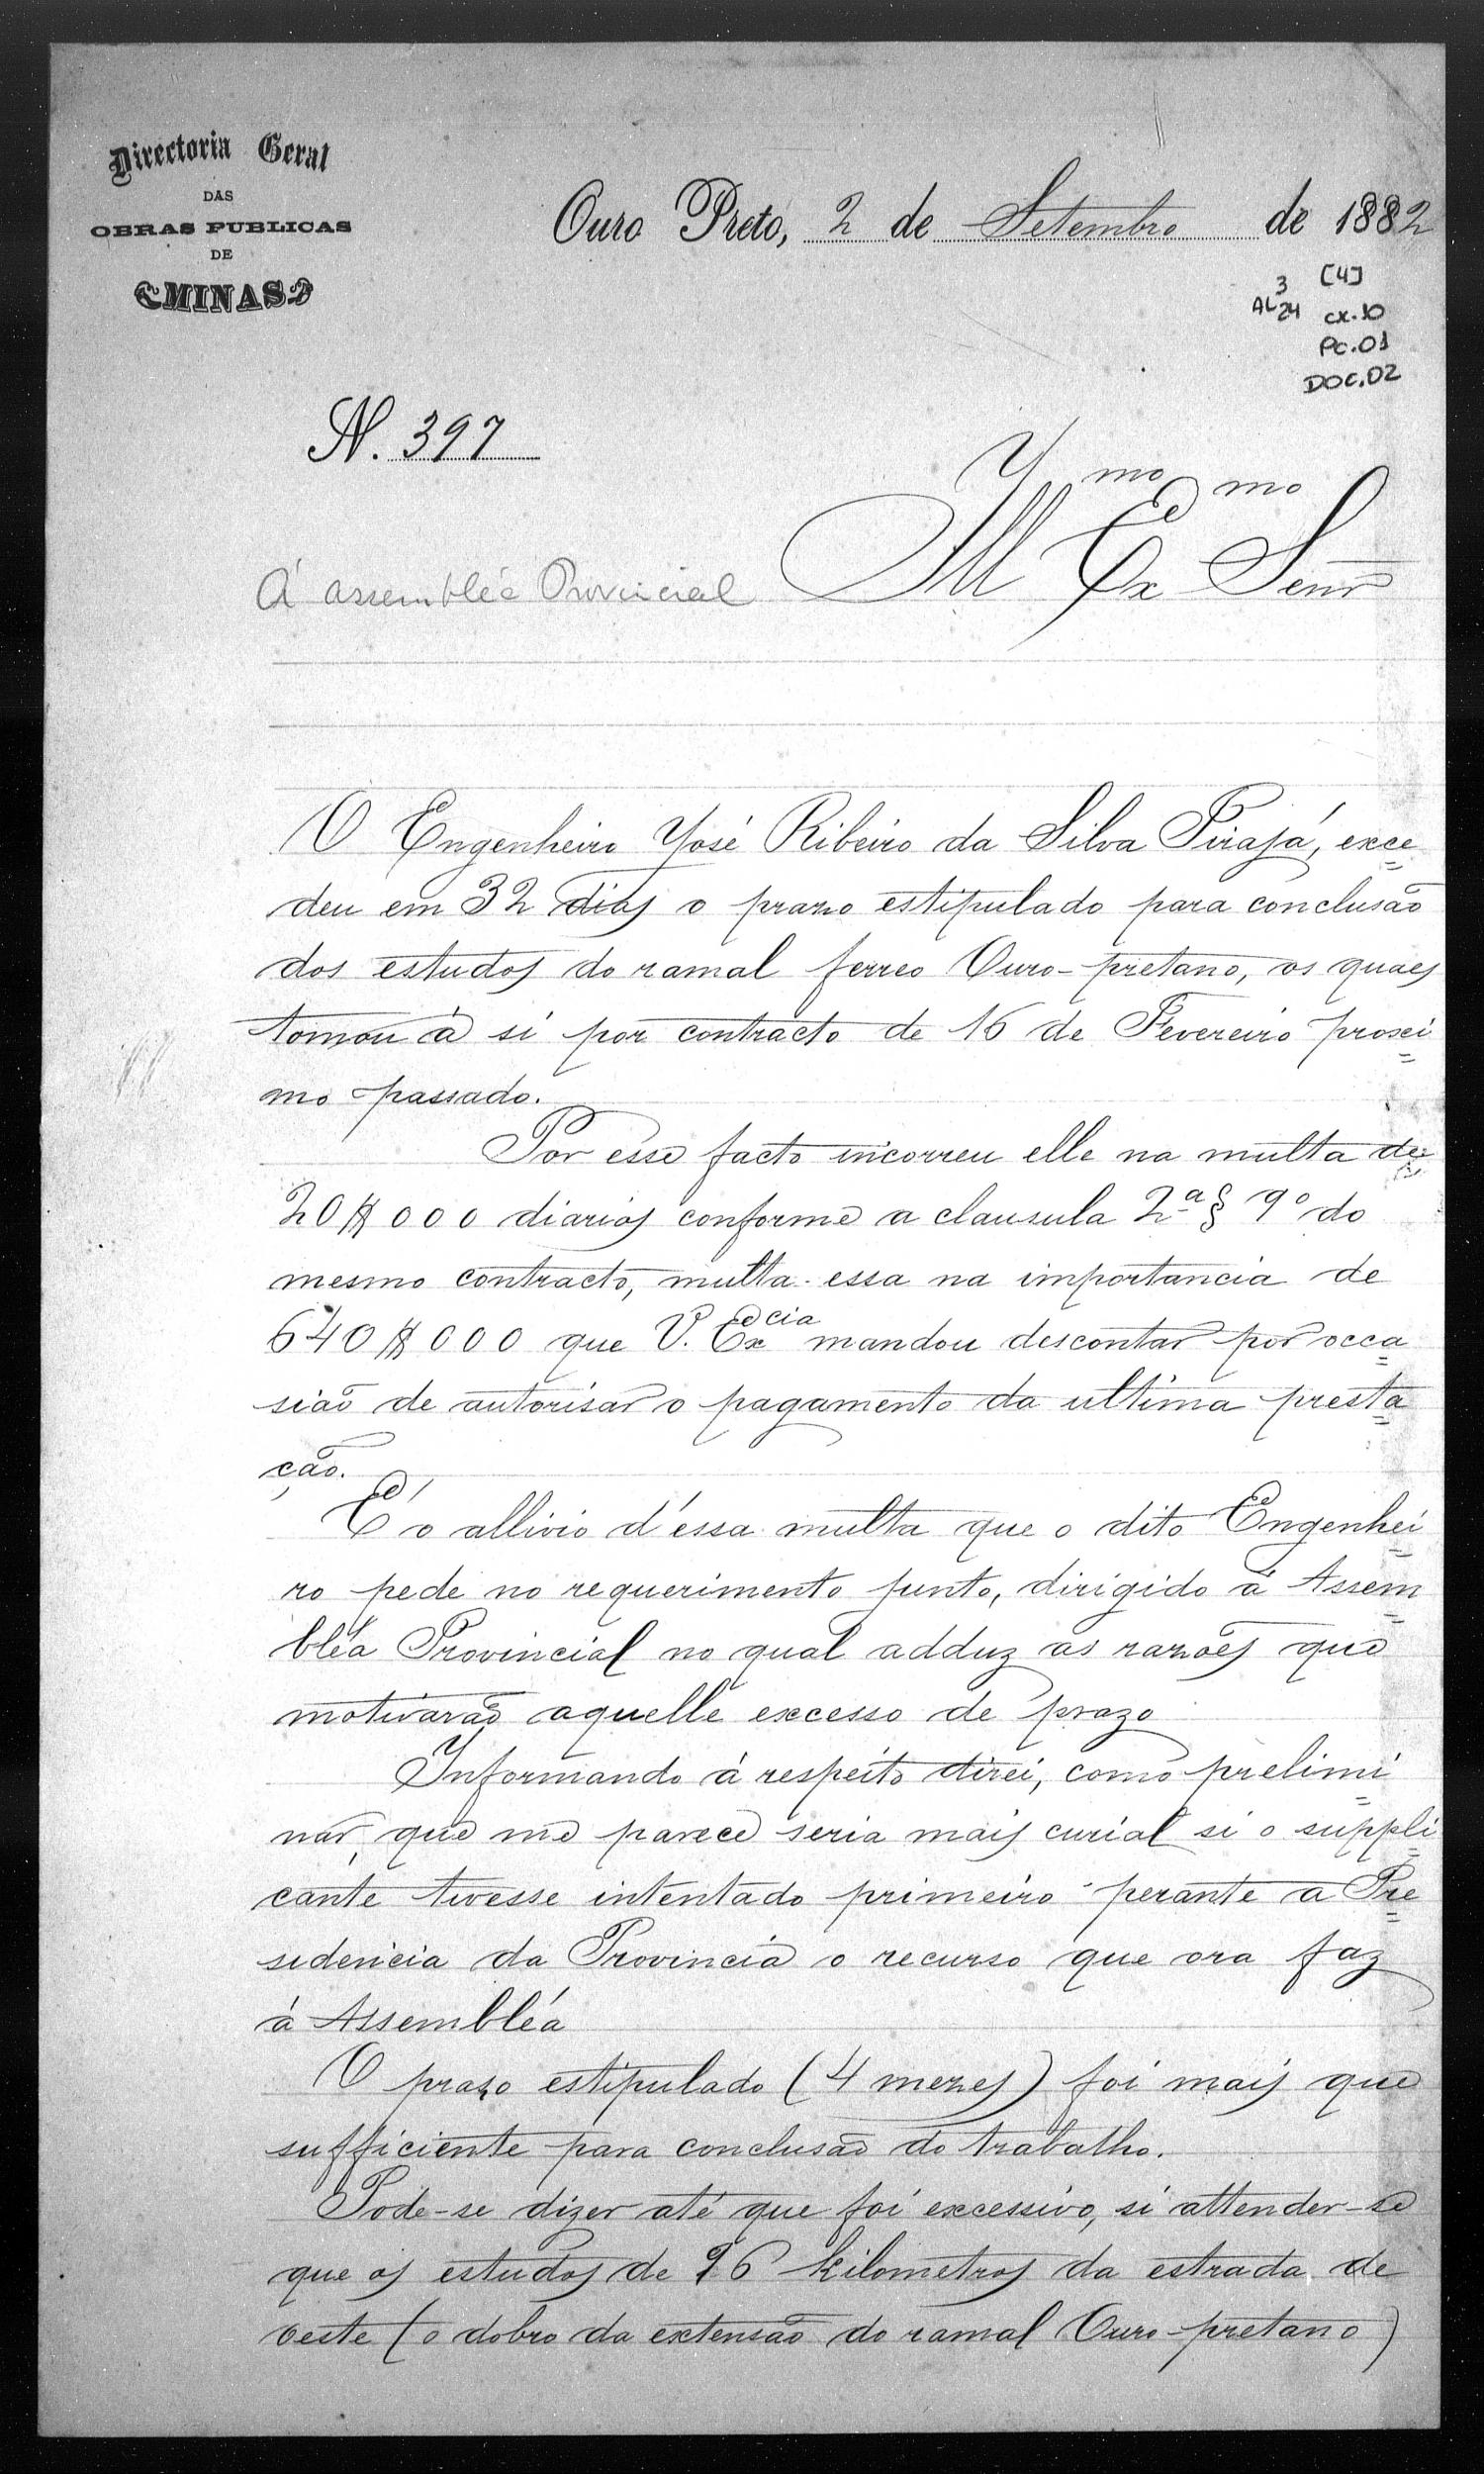 Directoria Geral
DAS
OBRAS PUBLICAS
DE
MINAS
Ouro Preto, 2 de Setembro de 1882
3 [4]
AL 24 cx.10
Pc.01
DOC.02
N. 397
Á Assembléa Provincial
Illmo Exmo Senr
O Engenheiro José Ribeiro da Silva Pirajá, exce=
deu em 32 dias o praso estipulado para conclusão
dos estudos do ramal ferreo Ouro-pretano, os quaes
tomou á si por contracto de 16 de Fevereiro proxi=
mo passado.
Por esse facto incorreu elle na multa de
20$000 diarios conforme a clausula 2ª § 9º do
mesmo contracto, multa essa na importancia de
640$000 que V. Excia mandou descontar por occa=
sião de autorisar o pagamento da ultima presta=
ção.
É o allivio d'essa multa que o dito Engenhei=
ro pede no requerimento junto, dirigido á Assem=
bléa Provincial no qual adduz as razões que
motivarão aquelle excesso de prazo
Informando á respeito direi, como prelimi=
nar, que me parece seria mais curial si o suppli=
cante tivesse intentado primeiro perante a Pre=
sidencia da Provincia o recurso que ora faz
á Assembléa
O praso estipulado (4 mezes) foi mais que
sufficiente para conclusão do trabalho.
Pode-se dizer até que foi excessivo, si attender-se
que os estudos de 96 kilometros da estrada de
oeste (o dobro da extensão do ramal Ouro-pretano)